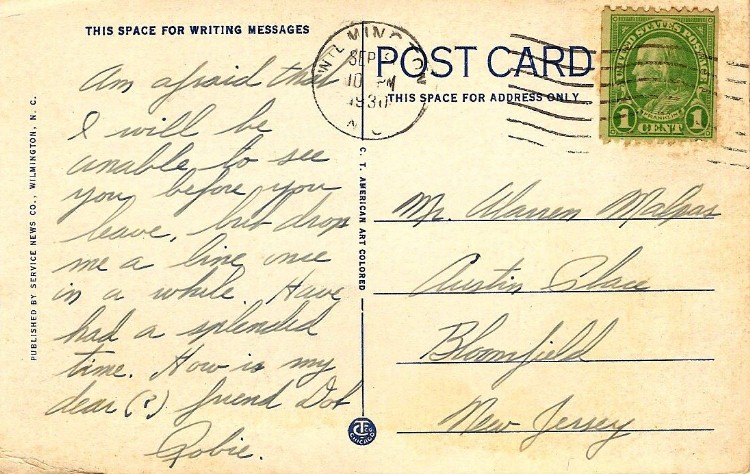 THIS SPACE FOR WRITING MESSAGES
Am afraid that
I will be
unable to see
you before you
leave, but drop
me a line once
in a while. Have
had a splendid
time. How is my
dear (?) friend Dot
Robie.
PUBLISHED BY SERVICE NEWS CO., WILMINGTON, N. C.
C. T. AMERICAN ART COLORED
CHICAGO
WILMINGTON
SEP
10 PM
1930
N C
POST CARD
THIS SPACE FOR ADDRESS ONLY
UNITED STATES POSTAGE
FRANKLIN
1 CENT 1
Mr. Warren Malpas
Austin Place
Bloomfield
New Jersey